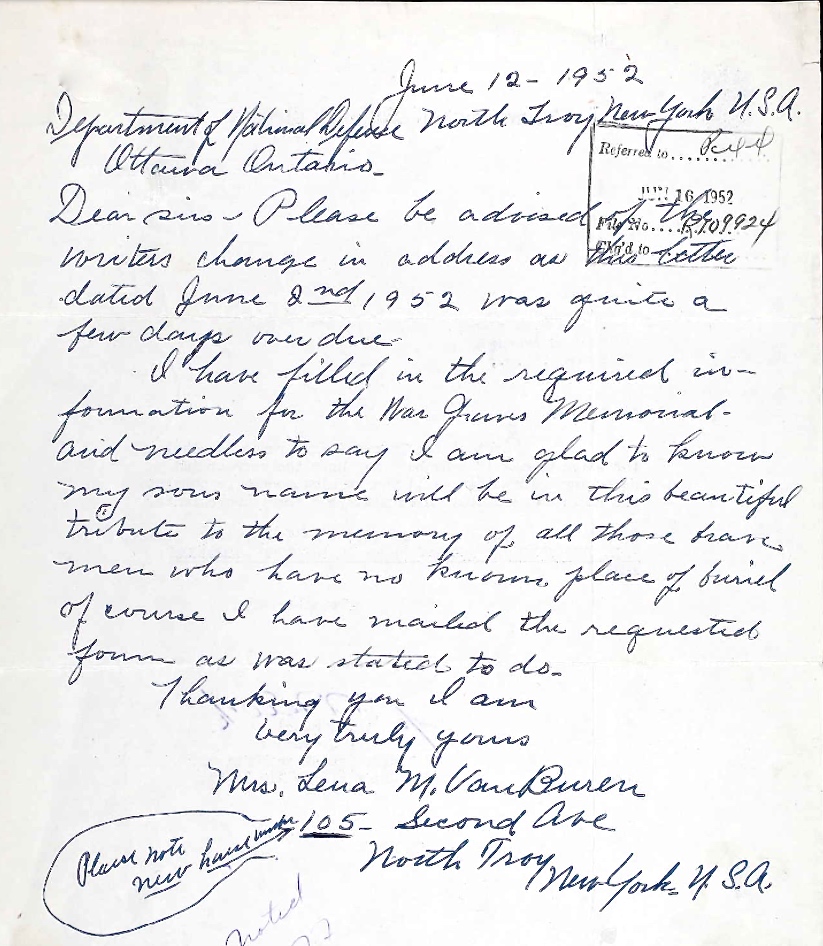 June 12 - 1952
Department of National Defense North Troy New York U.S.A.
Ottawa Ontario -
Referred to
16 1952
File No. R109924
Ch'd to
Dear sirs - Please be advised of the
writers change in address as this letter
dated June 2nd 1952 was quite a
few days over due
I have filled in the required in-
formation for the War Graves Memorial -
and needless to say I am glad to know
my sons name will be in this beautiful
tribute to the memory of all those brave
men who have no known place of buriel
of course I have mailed the requested
form as was stated to do -
Thanking you I am
very truly yours
Mrs. Lena M. Van Buren
105 - Second Ave
North Troy New York U.S.A.
Please note
new house number
noted